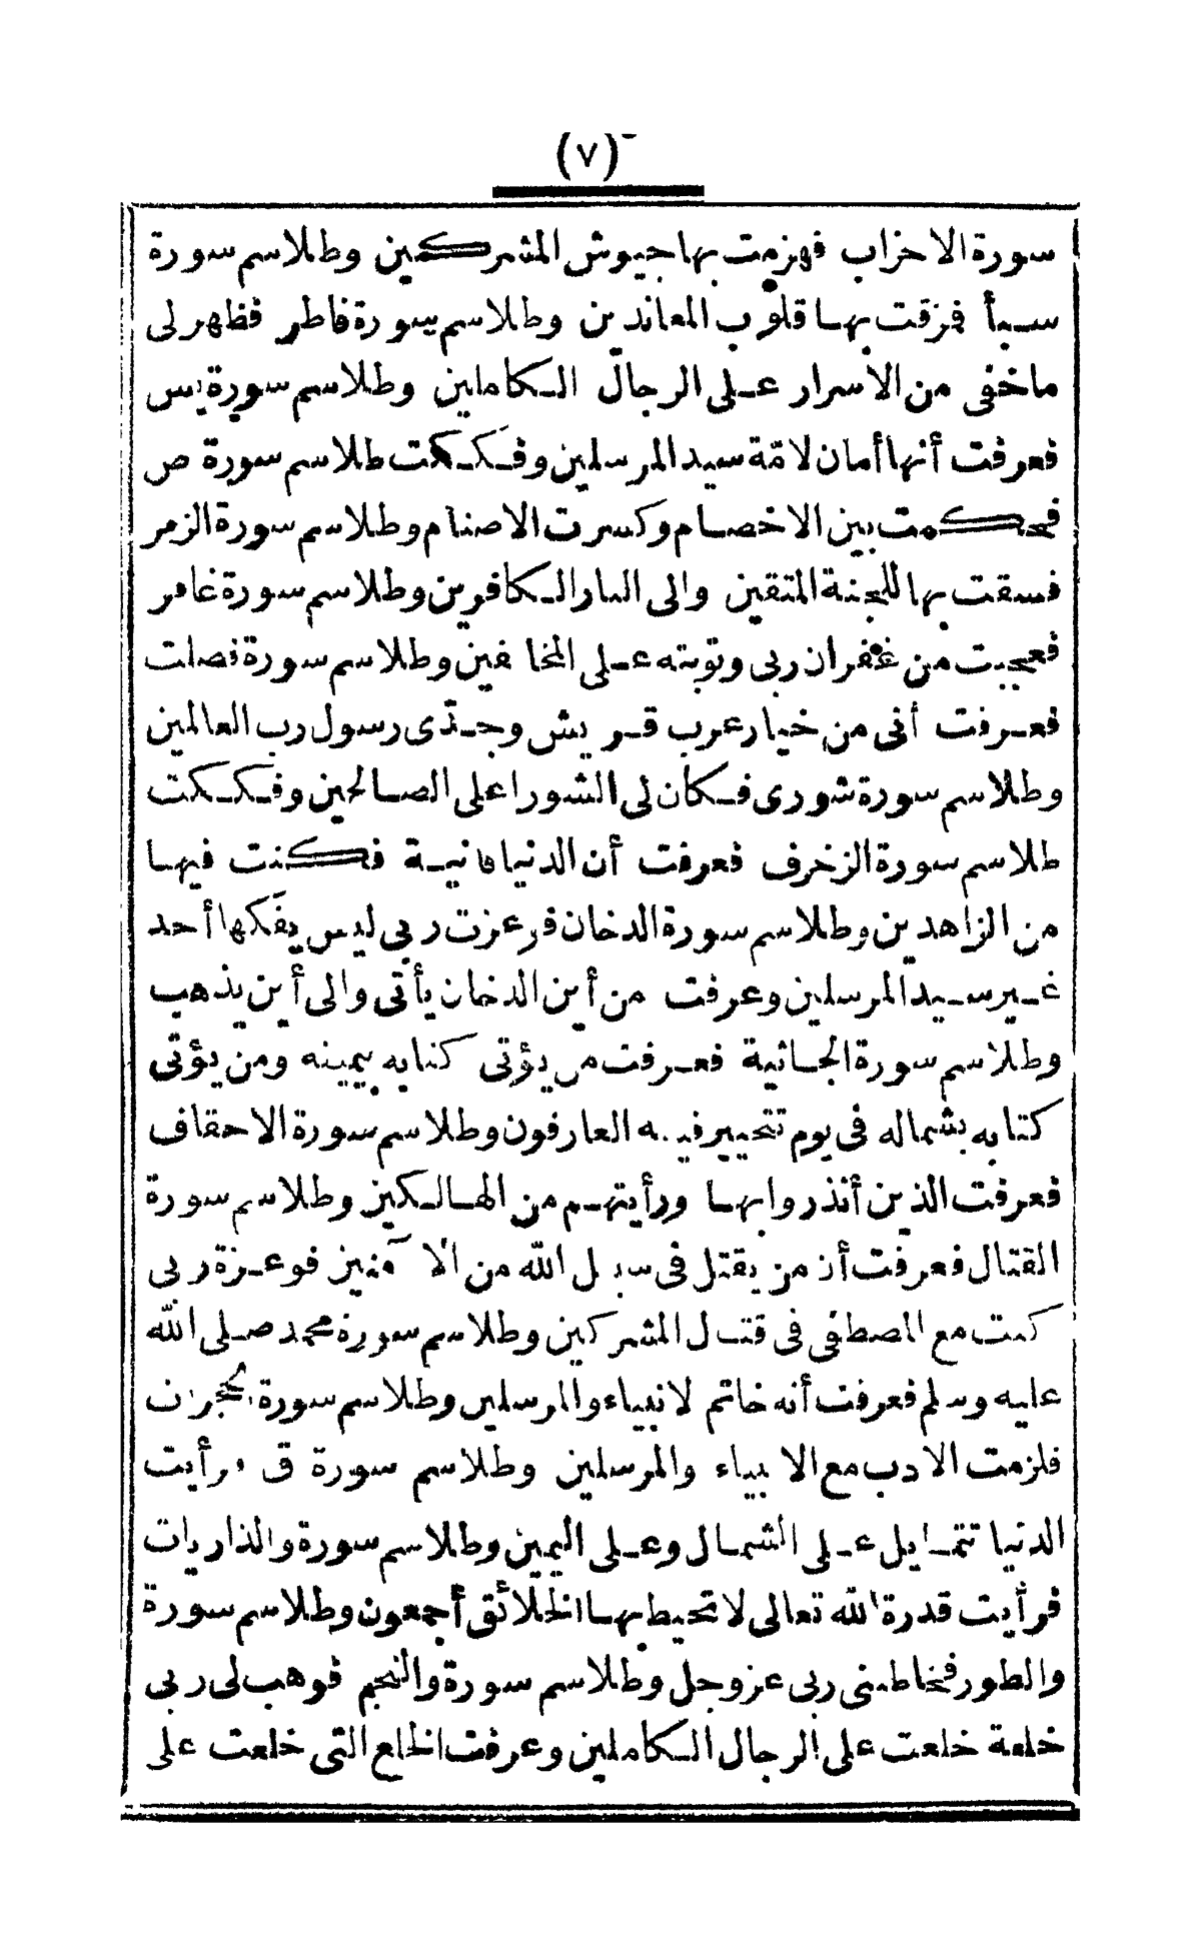 (٧)
سورة الاحزاب فهزمت بها جيوش المشركين وطلاسم سورة
سبأ فمزقت بها قلوب المعاندين وطلاسم سورة فاطر فظهر لى
ما خفى من الأسرار على الرجال الكاملين وطلاسم سورة يس
فعرفت أنها أمان لامّة سيد المرسلين وفككت طلاسم سورة ص
فحكمت بين الاخصام وكسرت الاصنام وطلاسم سورة الزمر
فسقت بها للجنة المتقين والى النار الكافرين وطلاسم سورة غافر
فعجبت من غفران ربى وتوبته على المخالفين وطلاسم سورة فصلت
فعرفت أنى من خيار عرب قريش وجدّى رسول رب العالمين
وطلاسم سورة شورى فكان لى الشورا على الصالحين وفككت
طلاسم سورة الزخرف فعرفت أن الدنيا فانية فكنت فيها
من الزاهدين وطلاسم سورة الدخان فوعزت ربى ليس يفكها أحد
غير سيد المرسلين وعرفت من أين الدخان يأتى والى أين يذهب
وطلاسم سورة الجاثية فعرفت من يؤتى كتابه بيمينه ومن يؤتى
كتابه بشماله فى يوم تتحير فيه العارفون وطلاسم سورة الاحقاف
فعرفت الذين أنذروا بها ورأيتهم من الهالكين وطلاسم سورة
القتال فعرفت أن من يقتل فى سبيل الله من الآمنين فوعزة ربى
كنت مع المصطفى فى قتل المشركين وطلاسم سورة محمد صلى الله
عليه وسلم فعرفت أنه خاتم لانبياء والمرسلين وطلاسم سورة الحجرات
فلزمت الادب مع الانبياء والمرسلين وطلاسم سورة ق فرأيت
الدنيا تتمايل على الشمال وعلى اليمين وطلاسم سورة والذاريات
فرأيت قدرة الله تعالى لا تحيط بها الخلائق أجمعون وطلاسم سورة
والطور فخاطبنى ربى عز وجل وطلاسم سورة والنجم فوهب لى ربى
خلعة خلعت على الرجال الكاملين وعرفت الخلع التى خلعت على